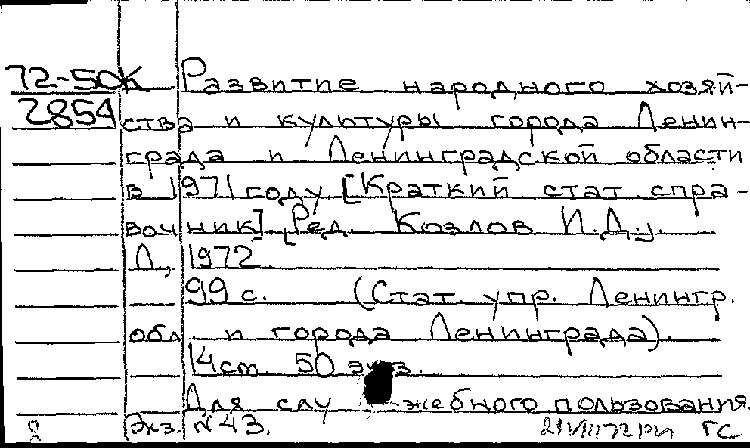 72-50К Развитие народного хозяй-
2854 ства и культуры города Ленин-
града и Ленинградской области
в 1971 году [Краткий стат спра-
вочник]. [Ред. Козлов И.Д.].
Л., 1972.
99 с. (Стат. упр. Ленингр.
обл. и города Ленинграда).
14 см 50 экз.
Для служебного пользования.
Экз. №43. ГС